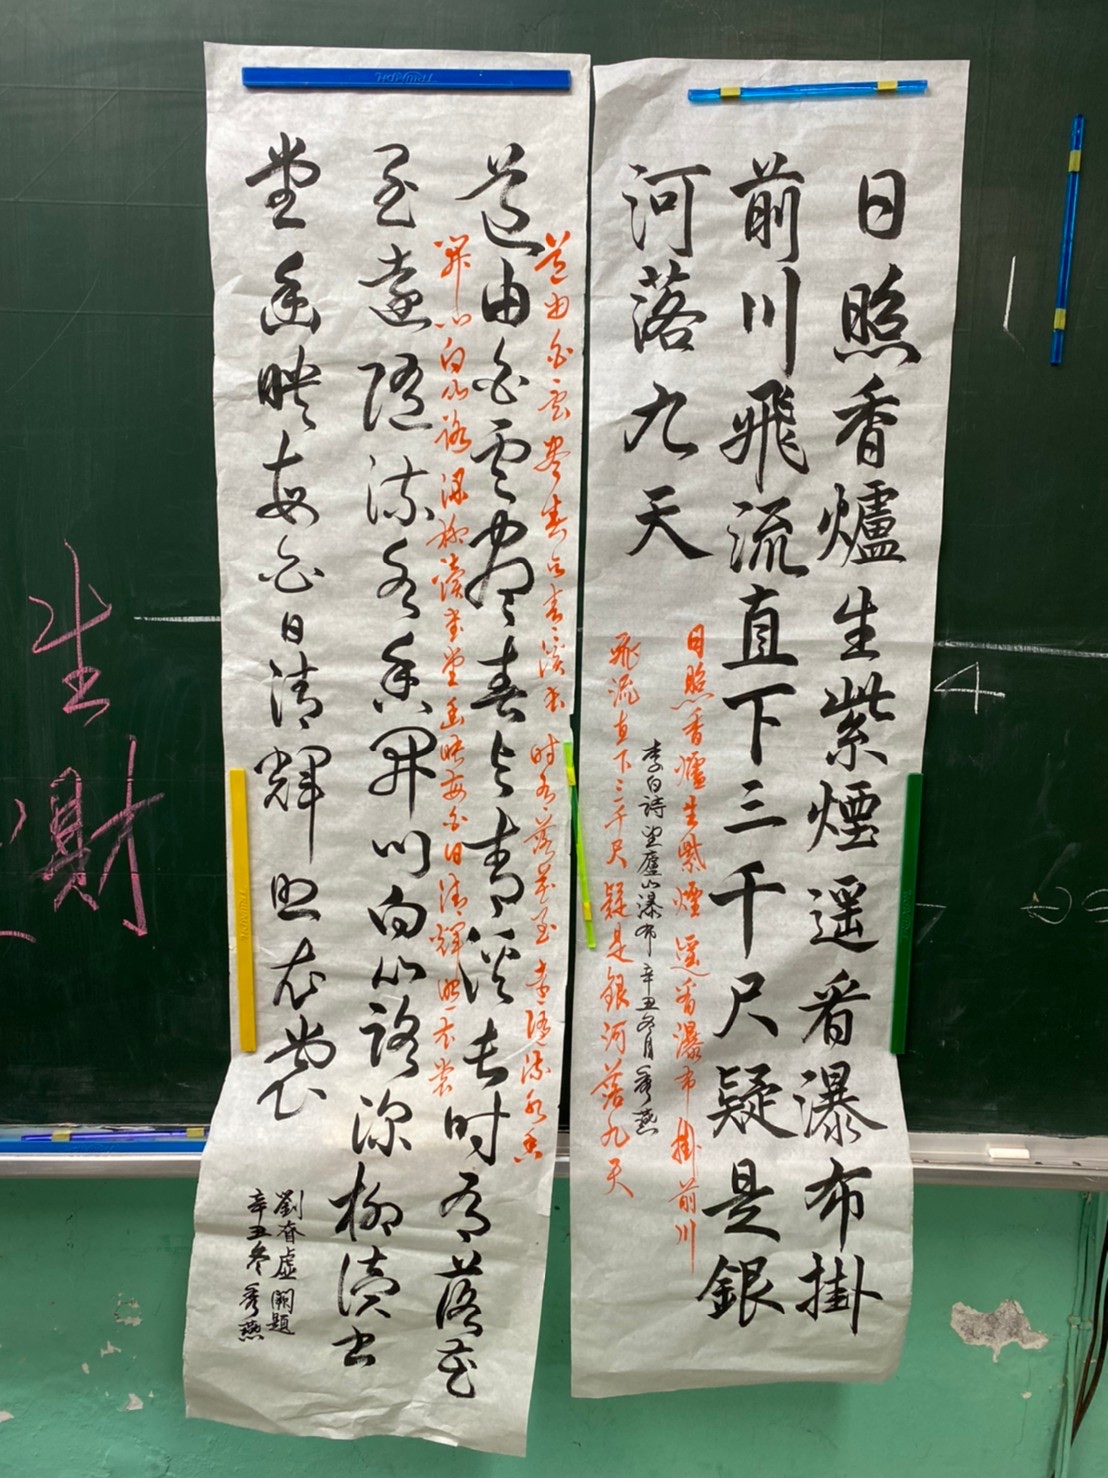 日照香爐生紫煙遥看瀑布掛
前川飛流直下三千尺疑是銀
河落九天
日照香爐生紫煙遥看瀑布掛前川
李白詩望廬山瀑布辛丑冬月秀燕
飛流直下三千尺疑是銀河落九天
道由白雲盡春與青溪長時有落花
至遠隨流水香開門向山路深柳讀書
堂幽映每白日清輝照衣裳
道由白雲盡春與青溪長時有落花至遠隨流水香
開門向山路深柳讀書堂幽映每白日清輝照衣裳
劉眘虛闕題
辛丑冬秀燕
生
謝
4